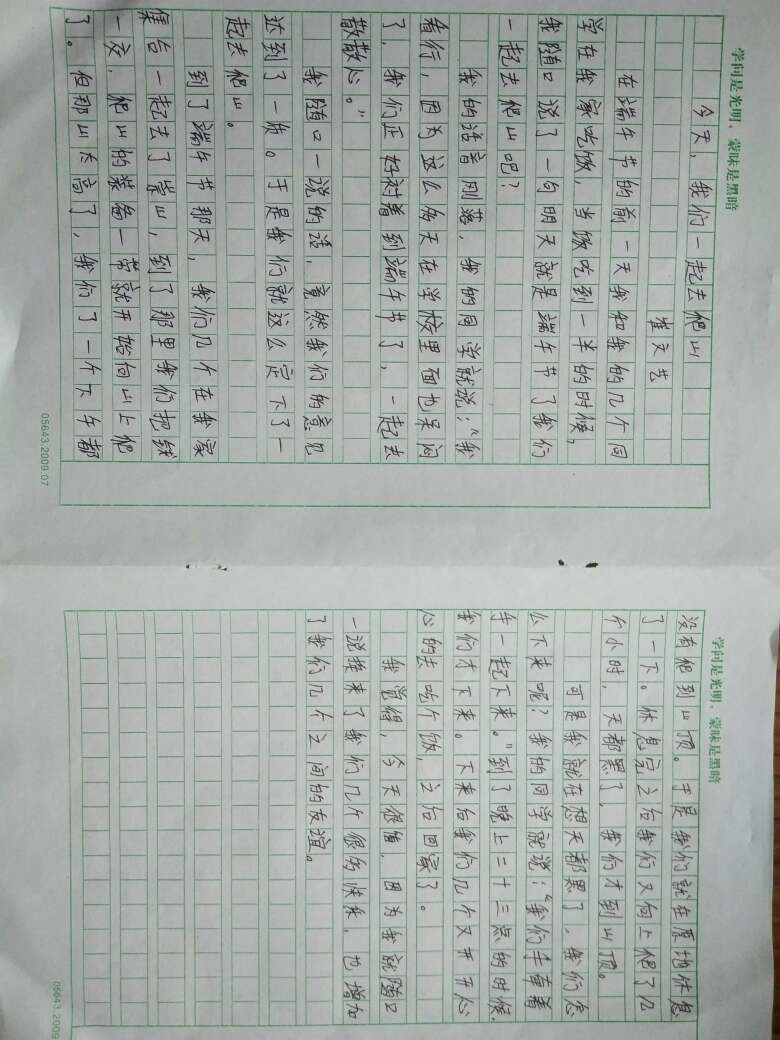 学问是光明，蒙昧是黑暗
今天，我们一起去爬山
崔文艺
在端午节的前一天我和我的几个同
学在我家吃饭，当饭吃到一半的时候，
我随口说了一句明天就是端午节了我们
一起去爬山吧？
我的话音刚落，我的同学就说：“我
看行，因为这么多天在学校里面也呆闷
了，我们正好衬着到端午节了，一起去
散散心。”
我随口一说的话，竟然我们的意见
达到了一致。于是我们就这么定下了一
起去爬山。
到了端午节那天，我们几个在我家
集合一起去了掌山，到了那里我们把钱
一交，爬山的装备一带就开始向山上爬
了。但那山太高了，我们了一个下午都
05643.2009.07
学问是光明，蒙昧是黑暗
没有爬到山顶。于是我们就在原地休息
了一下。休息完之后我们又向上爬了几
个小时，天都黑了，我们才到山顶。
可是我就在想天都黑了，我们怎
么下来呢？我的同学就说：“我们手牵着
手一起下来。”到了晚上二十三点的时候，
我们才下来。下来后我们几个又开开心
心的去吃个饭，之后回家了。
我觉得，今天很值，因为我就随口
一说换来了我们几个很多快乐，也增加
了我们几个之间的友谊。
05643.2009